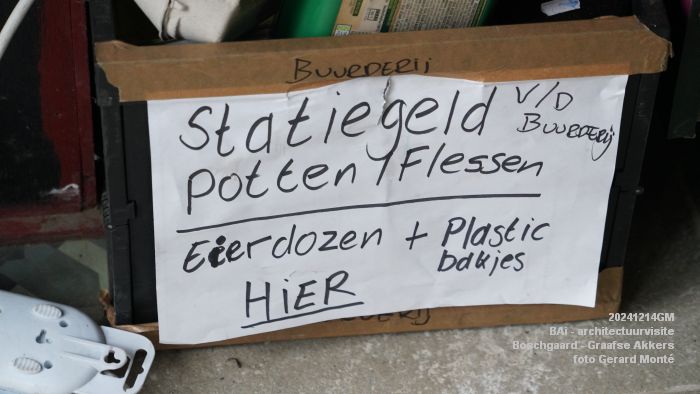 BUURDERij
Statiegeld V/D BUURDERij
potten/Flessen
Eierdozen + Plastic bakjes
HiER
20241214GM
BAi - architectuurvisite
Boschgaard - Graafse Akkers
foto Gerard Monté